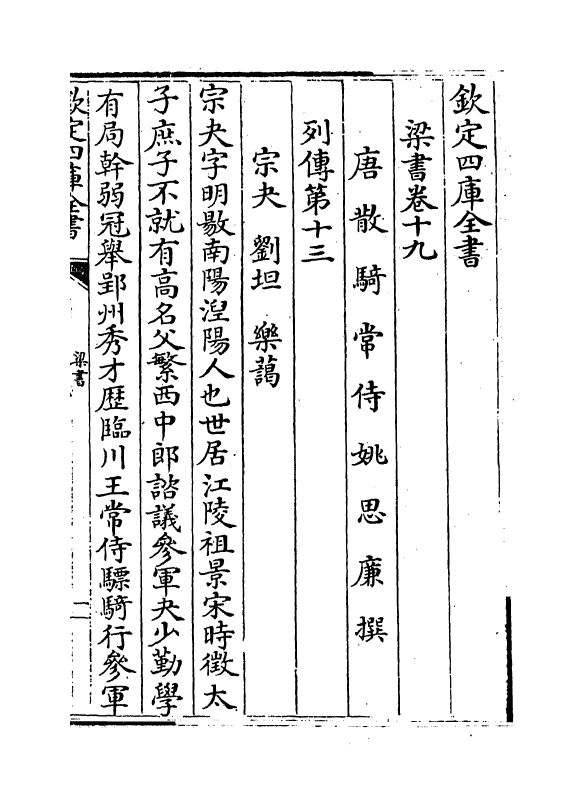 欽定四庫全書
梁書卷十九
唐散騎常侍姚思廉撰
列傳第十三
宗夬 劉坦 樂藹
宗夬字明敭南陽湼陽人也世居江陵祖景宋時徵太
子庶子不就有高名父繁西中郎諮議參軍夬少勤學
有局幹弱冠舉郢州秀才歴臨川王常侍驃騎行參軍
欽定四庫全書
梁書